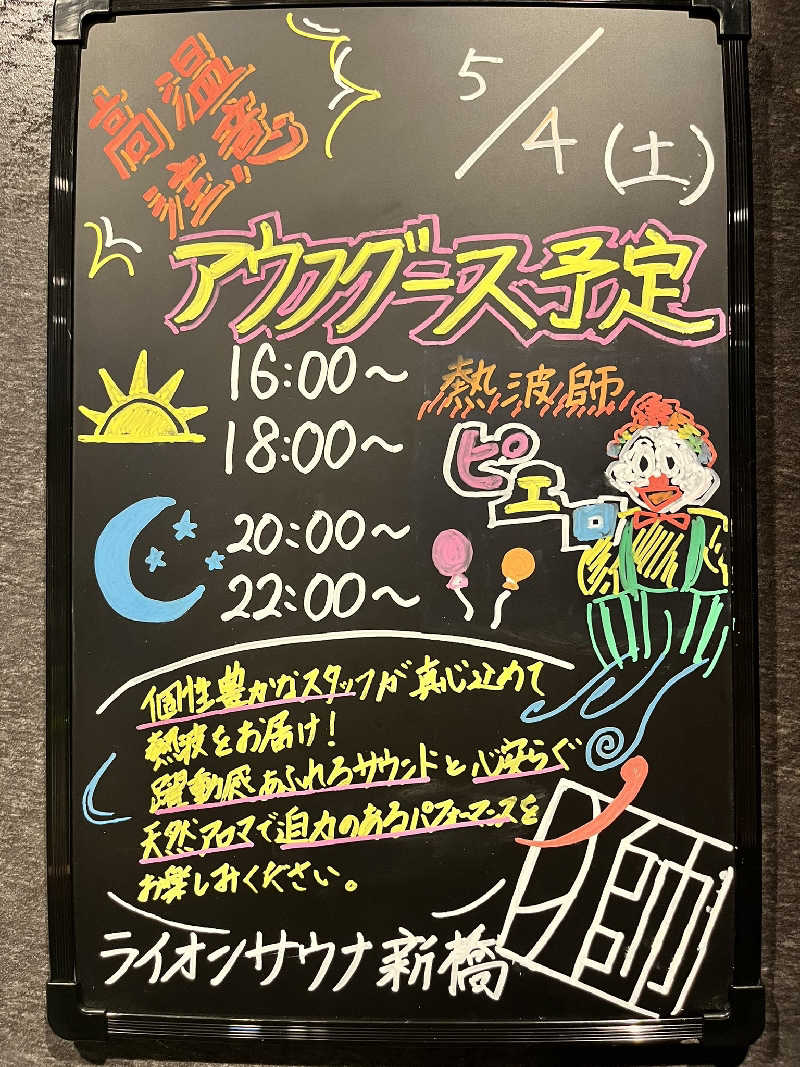 高温
注意
5/4(土)
アウフグース予定
16:00～
18:00～
20:00～
22:00～
熱波師
ピエロ
個性豊かなスタッフが真心込めて
熱波をお届け!
躍動感あふれるサウンドと心安らぐ
天然アロマで迫力のあるパフォーマンスを
お楽しみください。
ライオンサウナ新橋
師